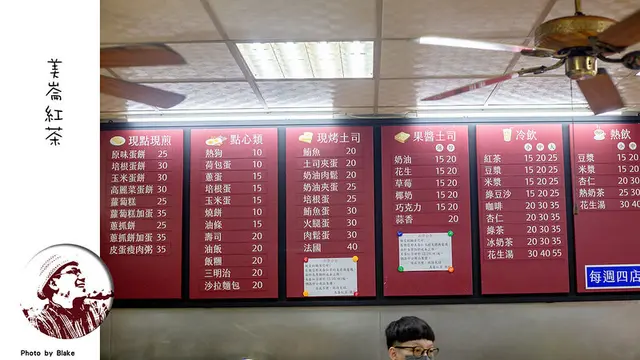 美崙紅茶
現點現煎
原味蛋餅 25
培根蛋餅 30
玉米蛋餅 30
高麗菜蛋餅 30
蘿蔔糕 25
蘿蔔糕加蛋 35
蔥抓餅 25
蔥抓餅加蛋 35
皮蛋瘦肉粥 35
點心類
熱狗 10
荷包蛋 10
蔥蛋 15
培根蛋 15
玉米蛋 15
燒餅 10
油條 15
壽司 20
油飯 20
飯糰 20
三明治 20
沙拉麵包 20
現烤土司
鮪魚 20
土司夾蛋 20
奶油肉鬆 20
奶油夾蛋 25
培根蛋 30
鮪魚蛋 30
火腿蛋 30
肉鬆蛋 30
法國 40
果醬土司
奶油 15 20
花生 15 20
草莓 15 20
椰奶 15 20
巧克力 15 20
蒜香 20
冷飲
小 中 大
紅茶 15 20 25
豆漿 15 20 25
米漿 15 20 25
綠豆沙 15 20 25
咖啡 20 30 35
杏仁 20 30 35
綠茶 20 30 35
冰奶茶 20 30 35
花生湯 30 40 55
熱飲
豆漿 15 20
米漿 15 20
杏仁 20 30
熱奶茶 25 30
花生湯 30 40
每週四店
Photo by Blake